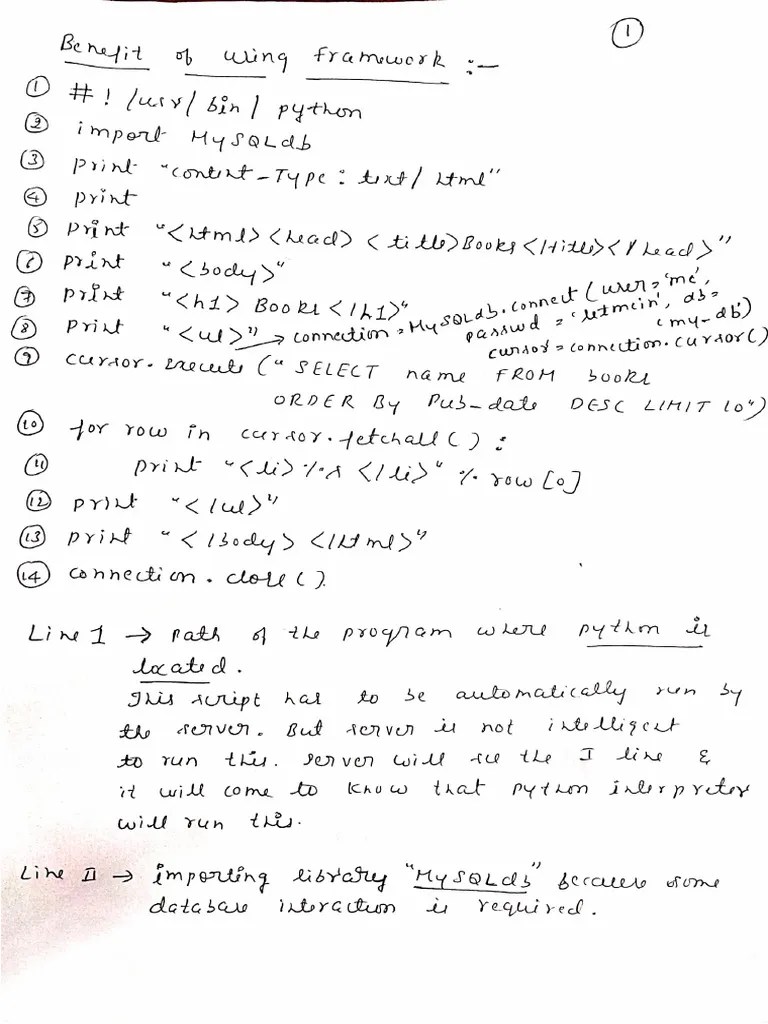 1
Benefit of using framework :-
1 #! /usr/ bin/ python
2 import MySQLdb
3 print "content-Type: text/ html"
4 print
5 print "<html><head> <title>Books</title></head>"
6 print "<body>"
7 print "<h1> Books </h1>"
8 print "<ul>" → connection = MySQLdb.connect (user='me',
passwd = 'letmein', db=
'my-db')
cursor = connection.cursor()
9 cursor.execute ("SELECT name FROM books
ORDER By Pub-date DESC LIMIT 10")
10 for row in cursor.fetchall() :
11 print "<li> %s </li>" % row [0]
12 print "</ul>"
13 print "</body> </html>"
14 connection.close().
Line 1 → path of the program where python is
located.
This script has to be automatically run by
the server. But server is not intelligent
to run this. server will see the I line &
it will come to know that python interpreter
will run this.
Line II → importing library "MySQLdb" because some
database interaction is required.